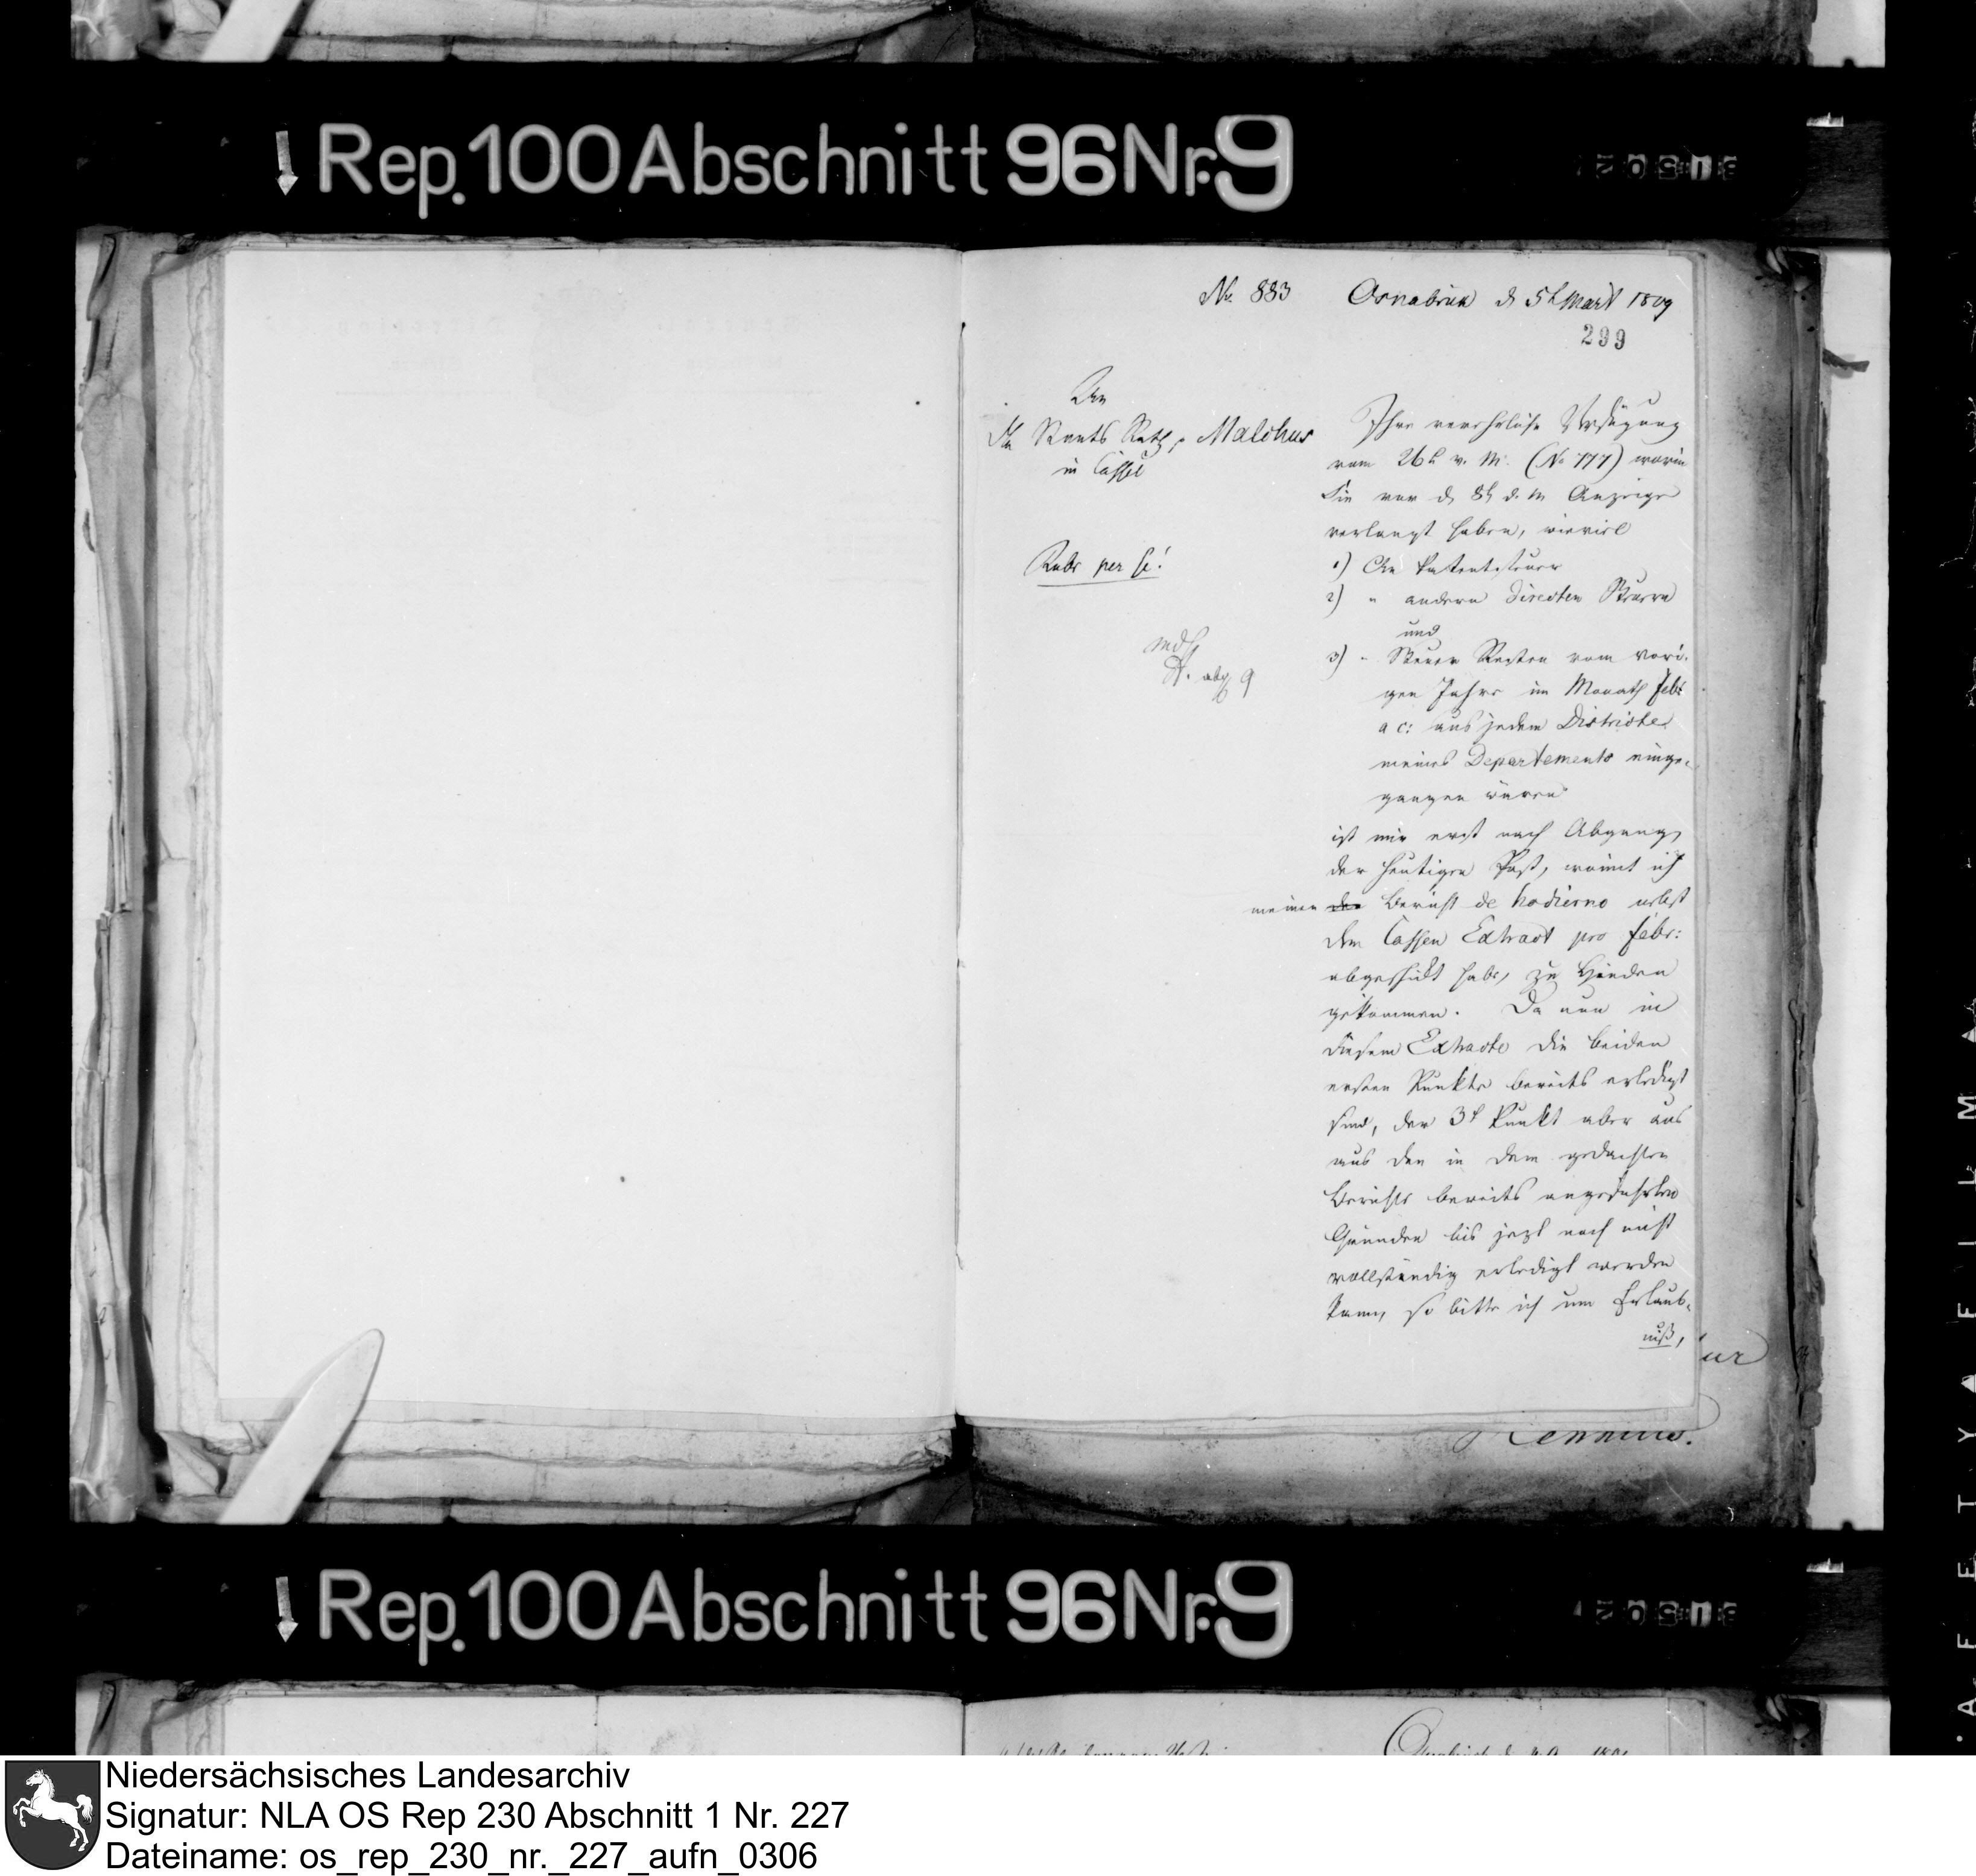 Rep. 100 Abschnitt 96 Nr. 9
No. 883 Osnabrück d 5t Mart 1809
299
An
den Staats Rath p Malchus
in Cassel
Rubr per se!
Ihre verehrliche Verfügung
vom 26t v. M. (No 777) worin
Sie vor d 8t d. M Anzeige
verlangt haben, wieviel
1) An Patentsteuer
2) " andern directen Steuern
und
3) " Steuer Resten vom vori-
gen Jahre im Monath febr
a c: aus jedem Districte
meines Departements einge-
gangen wären
ist mir erst nach Abgang
der heutigen Post, womit ich
meinen den Bericht de hodierno nebst
dem Cassen Extract pro febr:
abgeschickt habe, zu Händen
gekommen. Da nun in
diesem Extracte die beiden
ersten Punkte bereits erledigt
sind, der 3t Punkt aber aus
aus den in dem gedachten
Berichte bereits angeführten
Gründen bis jezt noch nicht
vollständig erledigt werden
kann, so bitte ich um Erlaub-
niß,
Rep. 100 Abschnitt 96 Nr. 9
Niedersächsisches Landesarchiv
Signatur: NLA OS Rep 230 Abschnitt 1 Nr. 227
Dateiname: os_rep_230_nr._227_aufn_0306